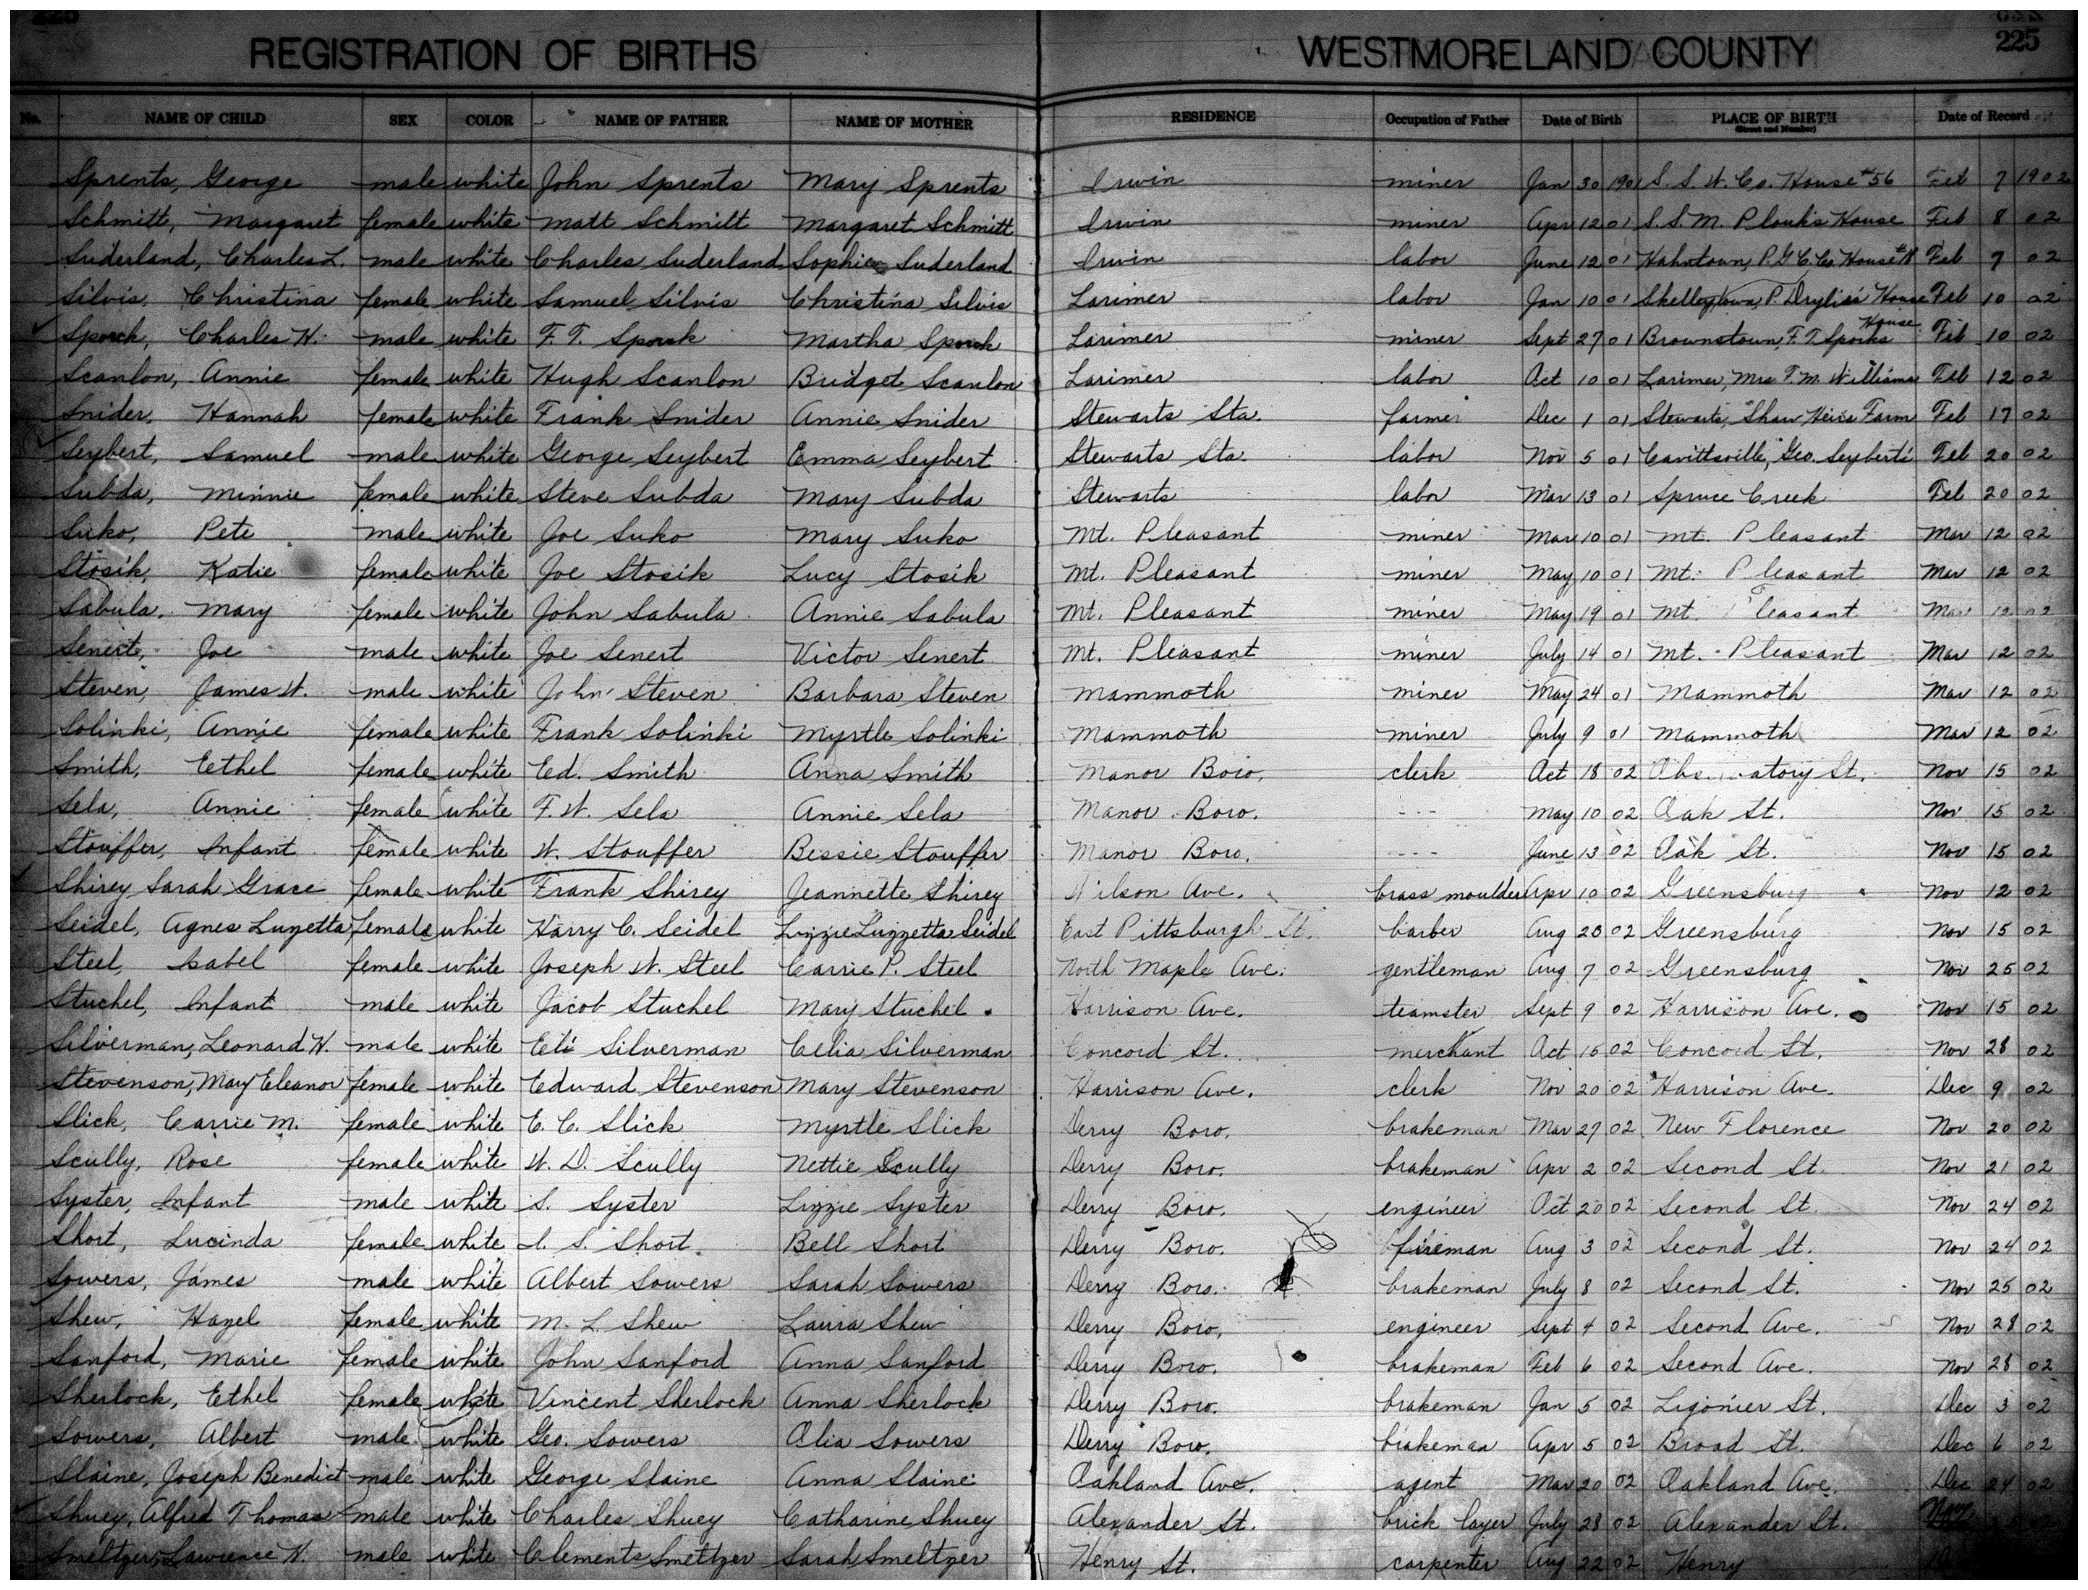 REGISTRATION OF BIRTHS WESTMORELAND COUNTY 225
No. NAME OF CHILD SEX COLOR NAME OF FATHER NAME OF MOTHER RESIDENCE Occupation of Father Date of Birth PLACE OF BIRTH (Street and Number) Date of Record
Sprents, George male white John Sprents Mary Sprents Irwin miner Jan 30 1901 S. S. W. Co. House #56 Feb 7 1902
Schmitt, Margaret female white Matt Schmitt Margaret Schmitt Irwin miner Apr 12 01 S. S. M. Plank's House Feb 8 02
Suderland, Charles L. male white Charles Suderland Sophia Suderland Irwin labor June 12 01 Hahntown, P. G. C. Co. House Feb 7 02
Silvis, Christina female white Samuel Silvis Christina Silvis Larimer labor Jan 10 01 Skelleytown, P. House Feb 10 02
Sporck, Charles H. male white F. T. Sporck Martha Sporck Larimer miner Sept 27 01 Brownstown, F. T. Sporks House Feb 10 02
Scanlon, Annie female white Hugh Scanlon Bridget Scanlon Larimer labor Oct 10 01 Larimer, Mrs. F. M. Williams Feb 12 02
Snider, Hannah female white Frank Snider Annie Snider Stewarts Sta. farmer Dec 1 01 Stewarts, Shaw Heirs Farm Feb 17 02
Seybert, Samuel male white George Seybert Emma Seybert Stewarts Sta. labor Nov 5 01 Cavittsville, Geo. Seybert's Feb 20 02
Subda, Minnie female white Steve Subda Mary Subda Stewarts labor Mar 13 01 Spruce Creek Feb 20 02
Suko, Pete male white Joe Suko Mary Suko Mt. Pleasant miner Mar 10 01 Mt. Pleasant Mar 12 02
Stosik, Katie female white Joe Stosik Lucy Stosik Mt. Pleasant miner May 10 01 Mt. Pleasant Mar 12 02
Sabula, Mary female white John Sabula Annie Sabula Mt. Pleasant miner May 19 01 Mt. Pleasant Mar 12 02
Senert, Joe male white Joe Senert Victor Senert Mt. Pleasant miner July 14 01 Mt. Pleasant Mar 12 02
Steven, James W. male white John Steven Barbara Steven Mammoth miner May 24 01 Mammoth Mar 12 02
Solinki, Annie female white Frank Solinki Myrtle Solinki Mammoth miner July 9 01 Mammoth Mar 12 02
Smith, Eethel female white Ed. Smith Anna Smith Manor Boro. clerk Oct 18 02 Observatory St. Nov 15 02
Sela, Annie female white F. W. Sela Annie Sela Manor Boro. --- May 10 02 Oak St. Nov 15 02
Stouffer, Infant female white W. Stouffer Bessie Stouffer Manor Boro. --- June 13 02 Oak St. Nov 15 02
Shirey Sarah Grace female white Frank Shirey Jeannette Shirey Wilson Ave. brass moulder Apr 10 02 Greensburg Nov 12 02
Seidel, Agnes Luzetta female white Harry C. Seidel Lizzie Luzzetta Seidel East Pittsburgh St. barber Aug 28 02 Greensburg Nov 15 02
Steel, Isabel female white Joseph W. Steel Carrie P. Steel North Maple Ave. gentleman Aug 7 02 Greensburg Nov 25 02
Stuchel, Infant male white Jacob Stuchel Mary Stuchel Harrison Ave. teamster Sept 9 02 Harrison Ave. Nov 15 02
Silverman, Leonard H. male white Eli Silverman Celia Silverman Concord St. merchant Oct 15 02 Concord St. Nov 28 02
Stevenson, Mary Eleanor female white Edward Stevenson Mary Stevenson Harrison Ave. clerk Nov 20 02 Harrison Ave. Dec 9 02
Slick, Carrie M. female white E. C. Slick Myrtle Slick Derry Boro. brakeman Mar 27 02 New Florence Nov 20 02
Scully, Rose female white W. D. Scully Nettie Scully Derry Boro. brakeman Apr 2 02 Second St. Nov 21 02
Syster, Infant male white S. Syster Lizzie Syster Derry Boro. engineer Oct 20 02 Second St. Nov 24 02
Short, Lucinda female white I. S. Short Bell Short Derry Boro. fireman Aug 3 02 Second St. Nov 24 02
Sowers, James male white Albert Sowers Sarah Sowers Derry Boro. brakeman July 8 02 Second St. Nov 25 02
Shew, Hazel female white M. L. Shew Laura Shew Derry Boro. engineer Sept 4 02 Second Ave. Nov 28 02
Sanford, Marie female white John Sanford Anna Sanford Derry Boro. brakeman Feb 6 02 Second Ave. Nov 28 02
Sherlock, Ethel female white Vincent Sherlock Anna Sherlock Derry Boro. brakeman Jan 5 02 Ligonier St. Dec 3 02
Sowers, Albert male white Geo. Sowers Olia Sowers Derry Boro. brakeman Apr 5 02 Broad St. Dec 6 02
Slaine, Joseph Benedict male white George Slaine Anna Slaine Oakland Ave. agent Mar 20 02 Oakland Ave. Dec 24 02
Shuey, Alfred Thomas male white Charles Shuey Catharine Shuey Alexander St. brick layer July 28 02 Alexander St. Nov
Smeltzer, Lawrence H. male white Clements Smeltzer Sarah Smeltzer Henry St. carpenter Aug 22 02 Henry